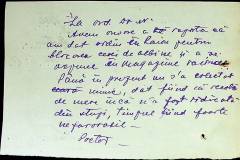 La ord. Dv. nr.
Avem onoare a raporta că
am dat ordin în raion pentru
blocarea de albine și a se
depune din magazine
Până în prezent nu s'a colectat
miere, dat fiind că recolta
de miere încă n'a fost ridicată
din stupi, timpul fiind foarte
nefavorabil —